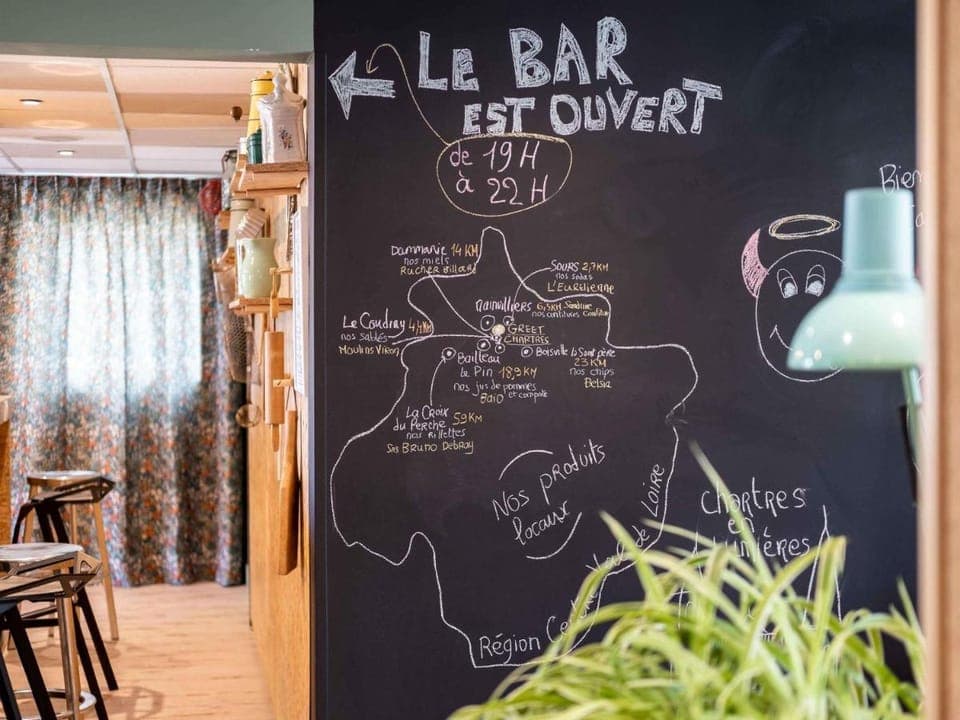 LE BAR
EST OUVERT
de 19H
à 22H
Dammarie 14 KM
nos miels
Rucher Billard
Sours 2,7KM
nos sodas
L'Eurélienne
Mainvilliers 6,5KM Sandrine
nos confitures
Le Coudray 4,4KM
nos sablés
Moulins Viron
GREET
CHARTRES
Boisville la Saint père
23 KM
nos chips
Belsia
Bailleau
le Pin 18,9KM
nos jus de pommes
et compote
La Croix
du Perche 59KM
nos Rillettes
Bruno Debray
Nos produits
locaux
Région Ce Val de Loire
Bien
Chartres
en
Lumières